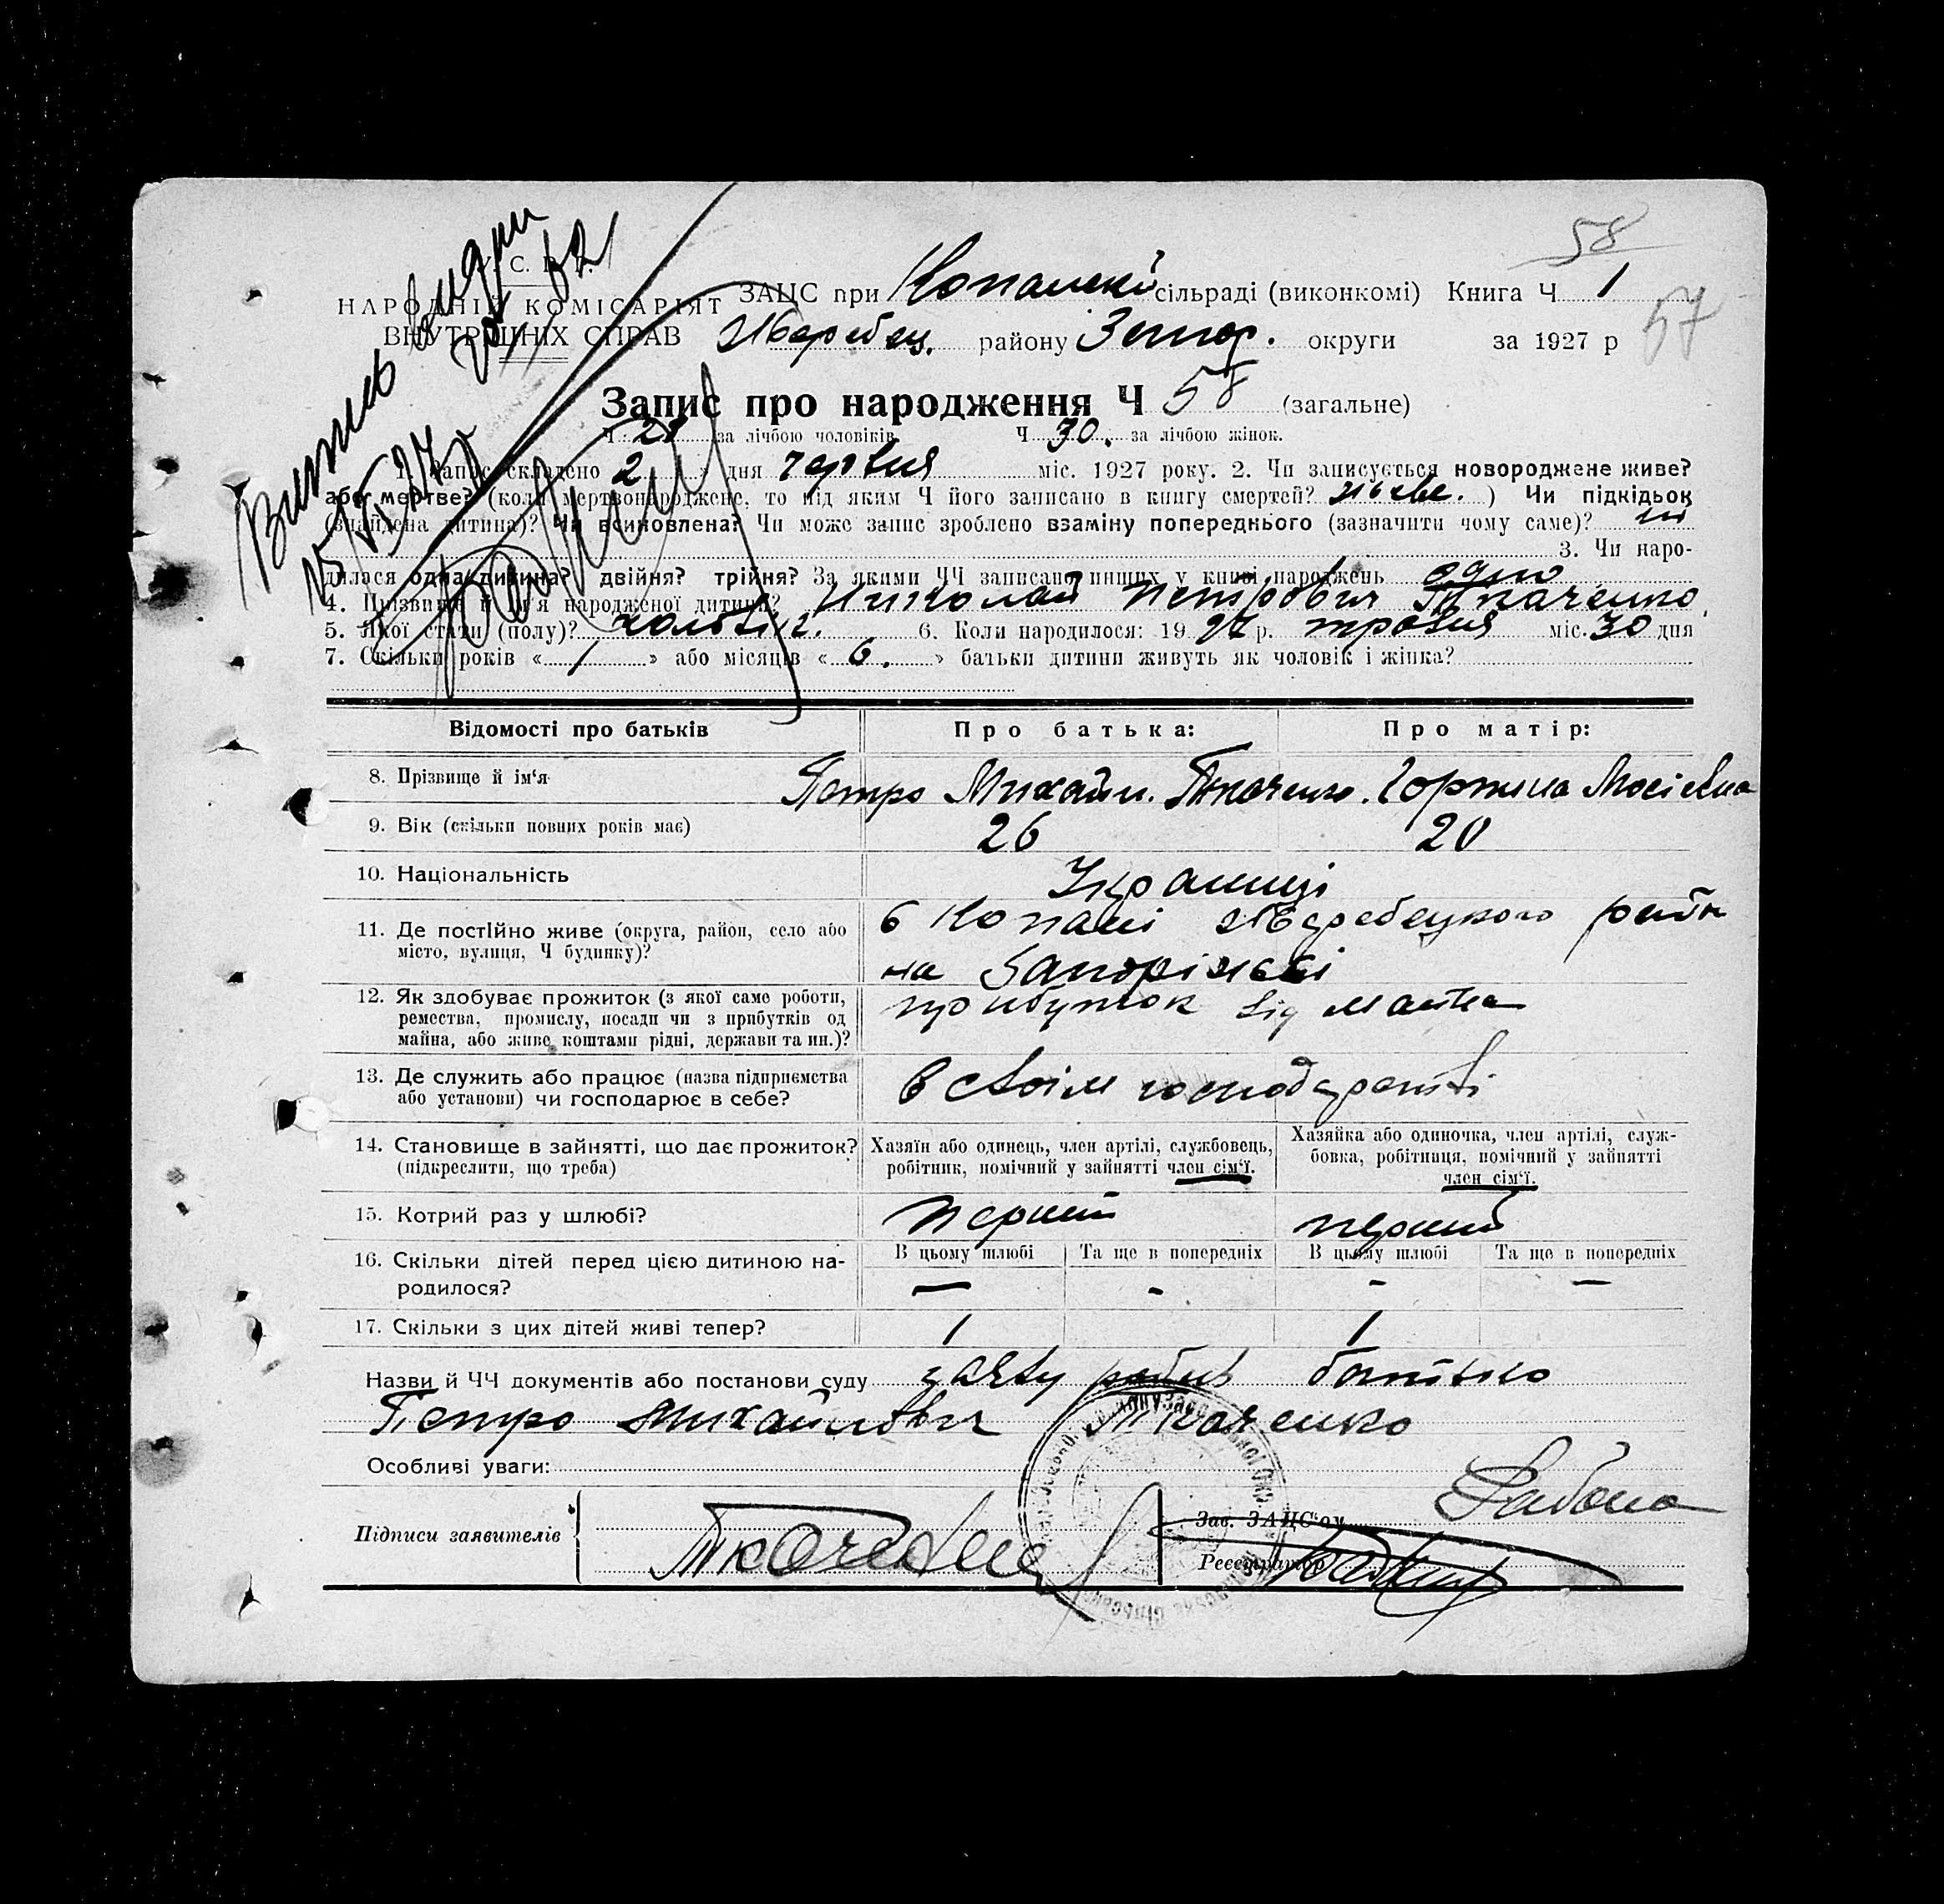 58
У. С. В. Р.
НАРОДНІЙ КОМІСАРІЯТ
ВНУТРІШНІХ СПРАВ
Витяг видан
за № 62
57
ЗАЦС при Копанські сільраді (виконкомі) Книга Ч 1
Жеребец. району Запор. округи за 1927 р
Запис про народження Ч 58 (загальне)
Ч 28 за лічбою чоловіків Ч 30. за лічбою жінок.
1. Запис складено 2 » дня червня міс. 1927 року. 2. Чи записується новороджене живе?
або мертве? (коли мертвонароджене, то під яким Ч його записано в книгу смертей? живе. ) Чи підкідьок
(знайдена дитина)? Чи всиновлена? Чи може запис зроблено взаміну попереднього (зазначити чому саме)? ні
3. Чи наро-
дилася одна дитина? двійня? трійня? За якими ЧЧ записано инших у книзі народжень одно
4. Прізвище й ім'я народженої дитини? Николай Петрович Ткаченко
5. Якої стати (полу)? чоловіч. 6. Коли народилося: 1927 р. травня міс. 30 дня
7. Скільки років « 1 » або місяців « 6. » батьки дитини живуть як чоловік і жінка?
Відомості про батьків Про батька: Про матір:
8. Прізвище й ім'я Петро Михайл. Ткаченко. Горпина Мосієвна
9. Вік (скільки повних років має) 26 20
10. Національність Українці
11. Де постійно живе (округа, район, село або в Копані Жеребецкого район
місто, вулиця, Ч будинку)? на Запоріжжі
12. Як здобуває прожиток (з якої саме роботи, прибуток від майна
ремества, промислу, посади чи з прибутків од
майна, або живе коштами рідні, держави та ин.)?
13. Де служить або працює (назва підприємства в своїм господарстві
або установи) чи господарює в себе?
14. Становище в зайнятті, що дає прожиток? Хазяїн або одинець, член артілі, службовець, Хазяйка або одиночка, член артілі, служ-
(підкреслити, що треба) робітник, помічний у зайнятті член сім'ї. бовка, робітниця, помічний у зайнятті
член сім'ї.
15. Котрий раз у шлюбі? перший перший
16. Скільки дітей перед цією дитиною на- В цьому шлюбі Та ще в попередніх В цьому шлюбі Та ще в попередніх
родилося? — - - —
17. Скільки з цих дітей живі тепер? 1 1
Назви й ЧЧ документів або постанови суду заяву робив батько
Петро Михайлович Ткаченко
Особливі уваги:
Підписи заявителів Зав. ЗАЦС'ом
Реєстратор